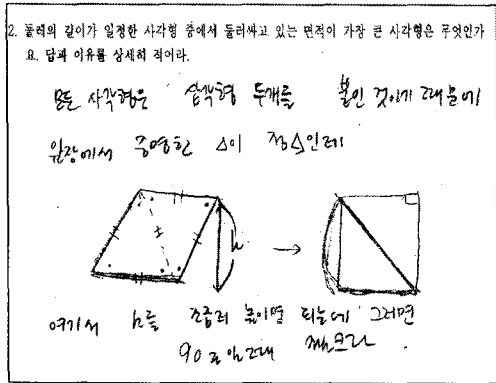 2. 둘레의 길이가 일정한 사각형 중에서 둘러싸고 있는 면적이 가장 큰 사각형은 무엇인가
요. 답과 이유를 상세히 적어라.
모든 사각형은 삼각형 두개를 붙인 것이기 때문에
앞장에서 증명한 △이 정△인데
h
여기서 h를 조금더 높이면 되는데 그러면
90도일때 제일크다.